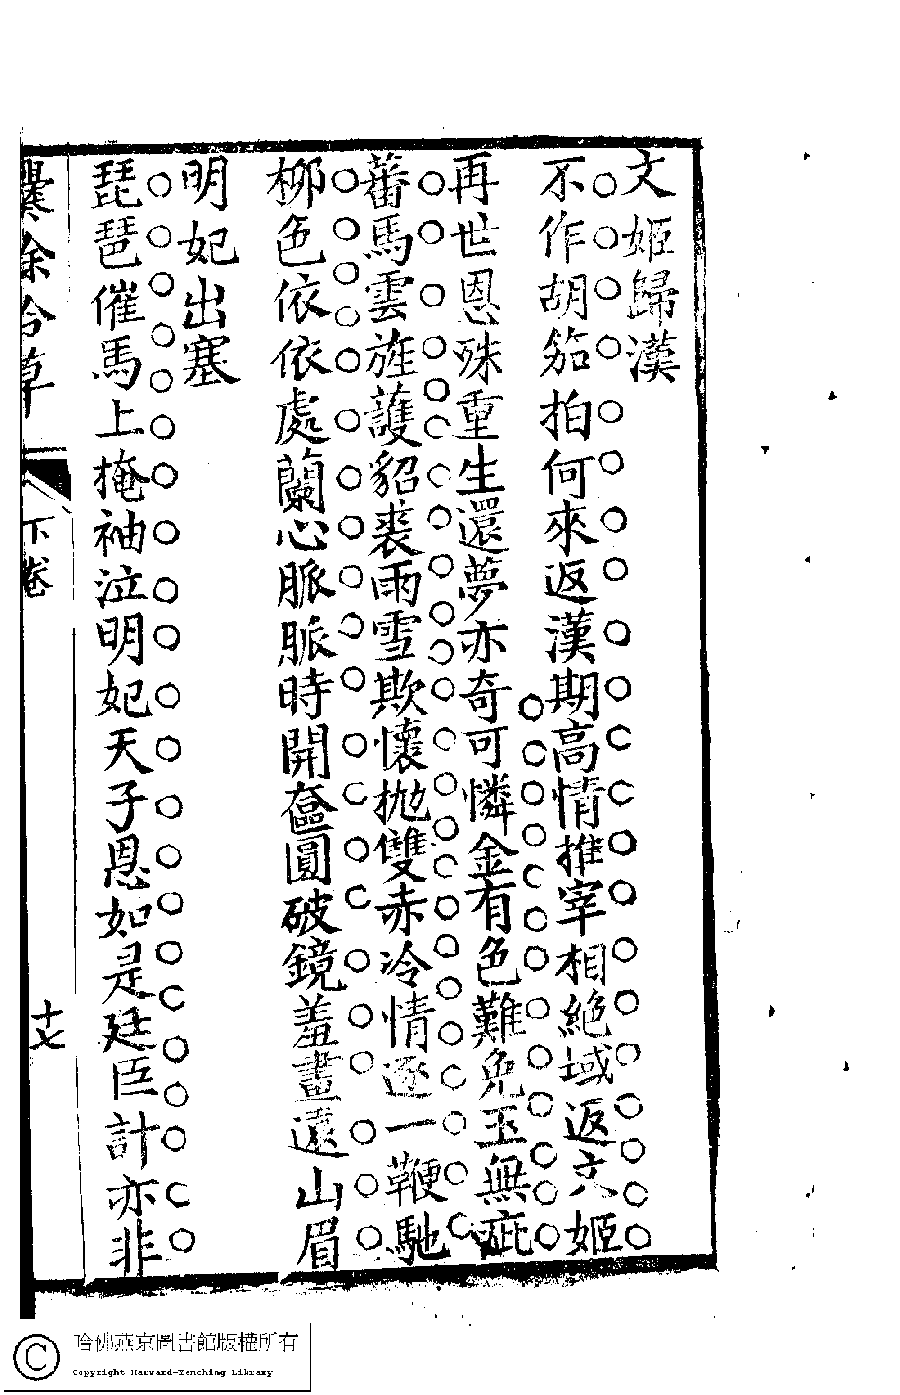 文姬歸漢
不作胡笳拍何來返漢期高情推宰相絕域返文姬
再世恩殊重生還夢亦奇可憐金有色難免玉無疵
蕃馬雲旌護貂裘雨雪欺懷拋雙赤冷情逐一鞭馳
柳色依依處蘭心脈脈時開奩圓破鏡羞畫遠山眉
明妃出塞
琵琶催馬上掩袖泣明妃天子恩如是廷臣計亦非
爨餘吟草
下卷
十七
哈佛燕京圖書館版權所有
Copyright Harvard-Yenching Library